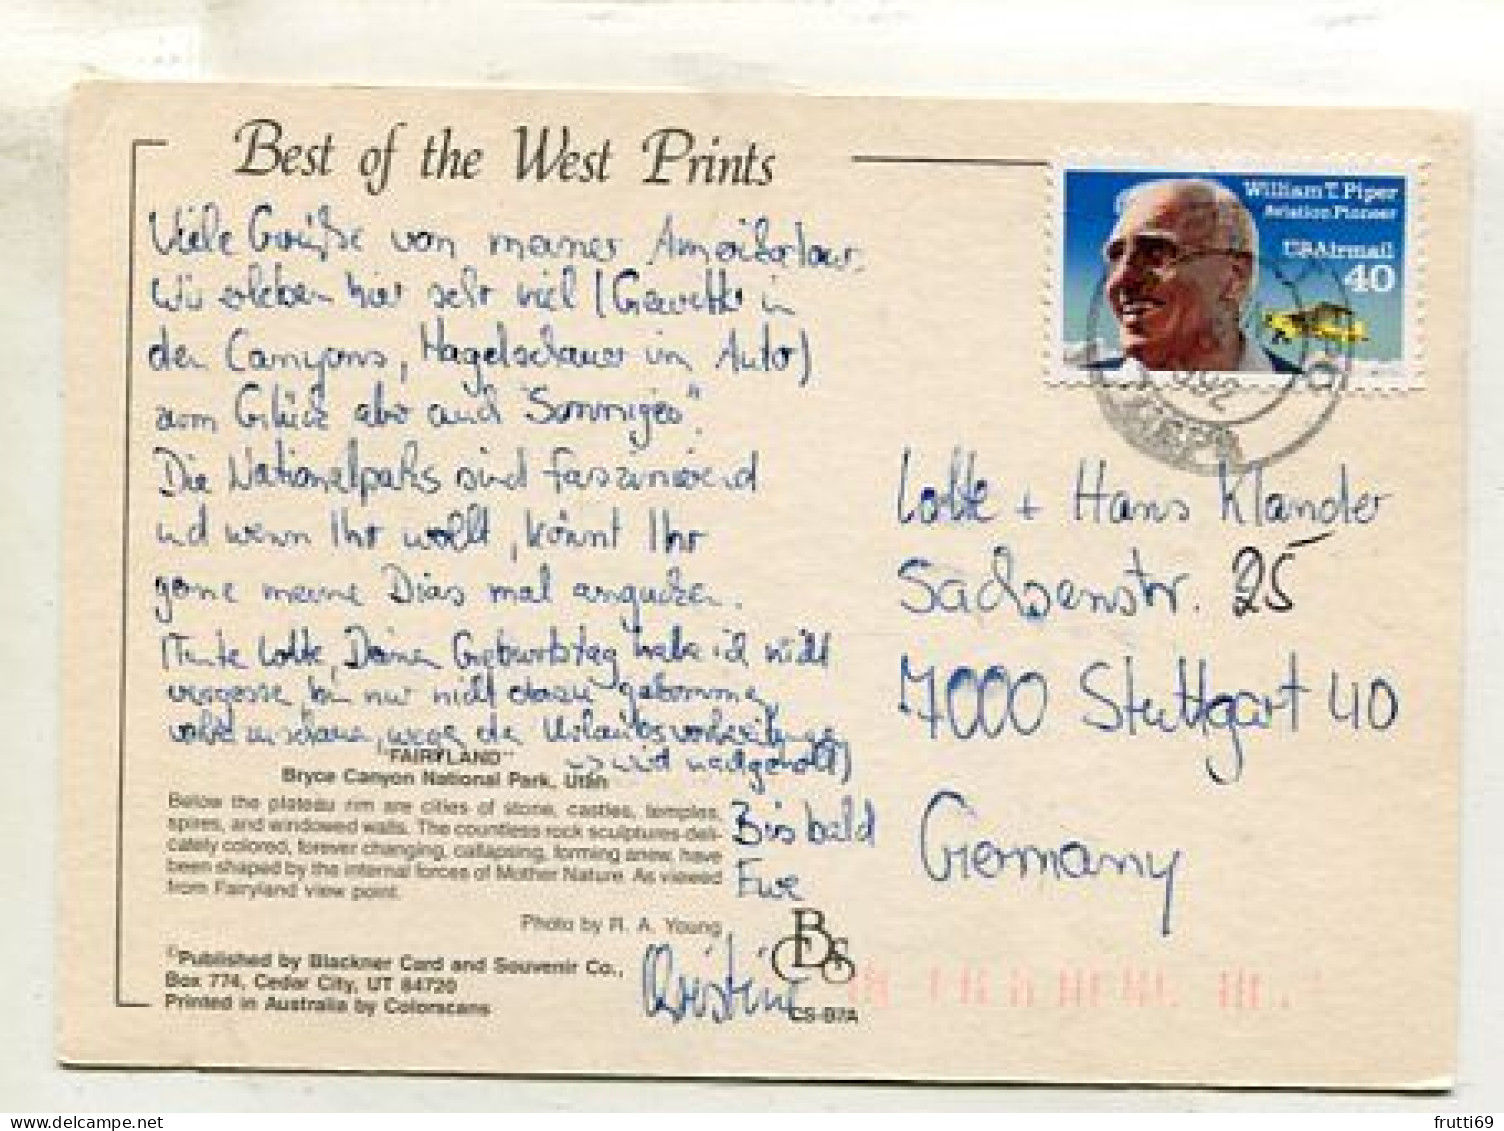 Best of the West Prints
William T. Piper
Aviation Pioneer
USAirmail
40
Viele Grüße von meiner Amerikatour.
Wir erleben hier sehr viel (Gewitter in
den Canyons, Hagelschauer im Auto)
zum Glück aber auch "Sonniges".
Die Nationalparks sind faszinierend
und wenn Ihr wollt, könnt Ihr
gerne meine Dias mal angucken.
(Tante Lotte, Deinen Geburtstag habe ich nicht
vergessen, bin nur nicht dazu gekommen,
wegen der Urlaubsvorbereitungen
wird nachgeholt)
Bis bald
Eure
Christine
Lotte + Hans Klander
Sachsenstr. 25
7000 Stuttgart 40
Germany
"FAIRYLAND"
Bryce Canyon National Park, Utah
Below the plateau rim are cities of stone, castles, temples,
spires, and windowed walls. The countless rock sculptures deli-
cately colored, forever changing, collapsing, forming anew, have
been shaped by the internal forces of Mother Nature. As viewed
from Fairyland view point.
Photo by R. A. Young
©Published by Blackner Card and Souvenir Co.,
Box 774, Cedar City, UT 84720
Printed in Australia by Colorscans
CS-B7A
frutti69